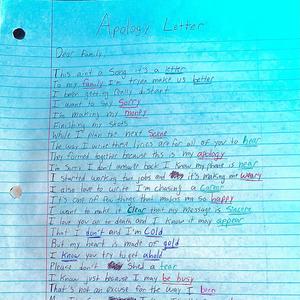 Apology Letter
Dear family,
This aint a Song it's a letter
To my family I'm tryna make us better
I been getting really distant
I want to Say Sorry
I'm making my money
Finishing my shots
While I plan the next Scene
The way I write these lyrics are for all of you to hear
They formed together because this is my apology
I'm Sorry I don't answer back I know my phone is near
I started working two jobs and it's making me weary
I also love to write I'm chasing a career
It's one of few things that makes me so happy
I want to make it Clear that my message is Sincere
I love you all to death and I know it may appear
That I don't and I'm Cold
But my heart is made of gold
I Know you try to get ahold
Please don't Shed a tear
I Know just because I may be busy
That's not an excuse for the way I been